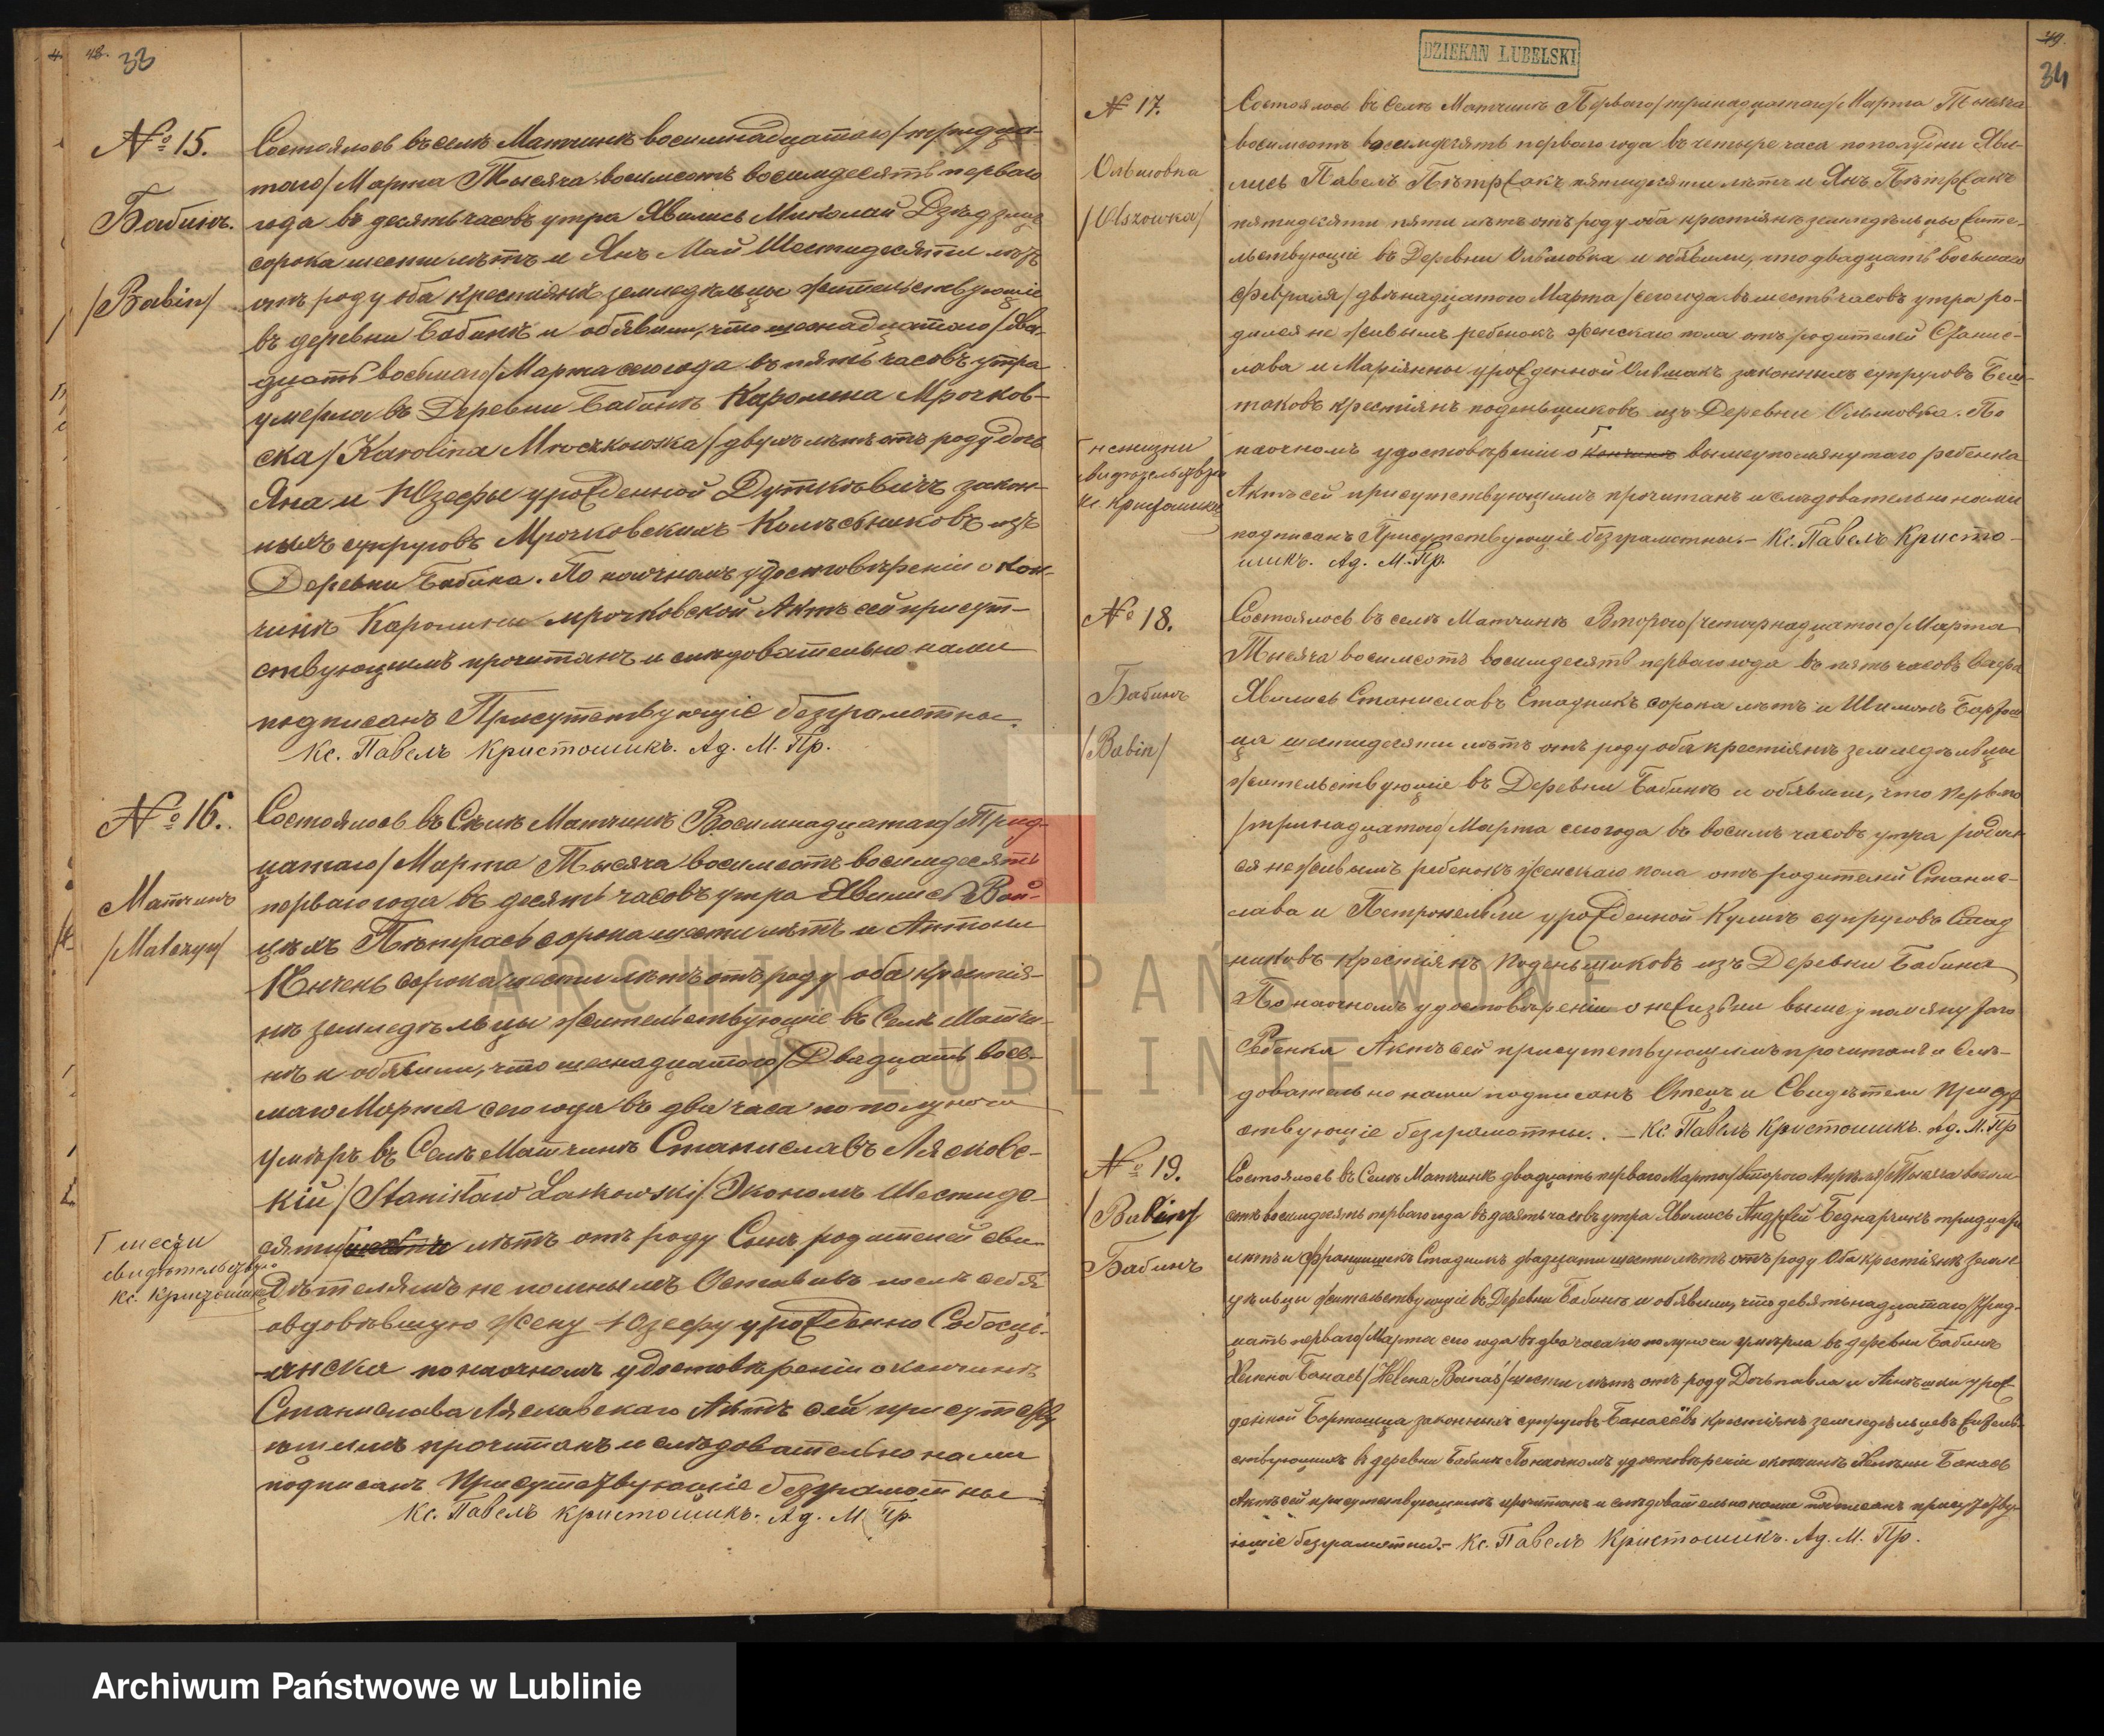 48. 33
№ 15.
Бабинъ.
/Babin/
Состоялось въ селѣ Матчинѣ восимнадцатаго/тридца-
таго/Марта Тысяча восимсотъ восимдесятъ перваго
года въ десять часовъ утра Явились Миколай
сорока шести лѣтъ и Янъ Май Шестидесяти лѣтъ
отъ роду оба крестіянѣ земледѣльцы жительствующіе
въ деревни Бабинѣ и объявили, что шеснадцатаго/два-
дцать восьмаго/Марта сего года въ пять часовъ утра
умерла въ Деревни Бабинѣ Каролина Мрочков-
ска/Karolina Mroczkowska/двухъ лѣтъ отъ роду дочь
Яна и Юзефы урожденной Дуткѣвичъ закон-
ныхъ супруговъ Мрочковскихъ Комѣсьниковъ изъ
Деревни Бабина. По наочномъ удостовѣреніи о кон-
чинѣ Каролины Мрочковской Актъ сей присут-
ствующимъ прочитанъ и слѣдовательно нами
подписанъ Присутствующіе безграмотны.
Кс. Павелъ Кристошикъ. Ад. М. Пр.
№ 16.
Матчинъ
/Matczyn/
Состоялось въ Селѣ Матчинѣ Восимнадцатаго/Трид-
цатаго/Марта Тысяча восимсотъ восимдесятъ
перваго года въ десять часовъ утра Явились Вой-
цѣхъ Пѣтрась сорока шести лѣтъ и Антони
сорока шести лѣтъ отъ роду оба крестія-
нѣ земледѣльцы жительствующіе въ Селѣ Матчи-
нѣ и объявили, что шеснадцатаго/Двадцать вось-
маго Марта сего года въ два часа по полуночи
умѣръ въ Селѣ Матчинѣ Станиславъ Лясковс-
кій/Stanisław Laskowski/Экономъ Шестиде-
сяти лѣтъ отъ роду Сынъ родителей сви-
Г шести
свидѣтельствую
Кс. Кристошикъ
дѣтелямъ не помнымъ Оставивъ послѣ себя
овдовѣвшую жену Юзефу урожденно Собесці-
анска по наочномъ удостовѣреніи о кончинѣ
Станислава Лясковскаго Актъ сей присутству
ющимъ прочитанъ и слѣдовательно нами
подписанъ Присутствующіе безграмотны
Кс. Павелъ Кристошикъ. Ад. М. Пр.
DZIEKAN LUBELSKI
49. 34
№ 17.
Ольшовка
/Olszowka/
Состоялось въ Селѣ Матчинѣ Перваго/тринадцатаго/Марта Тысяча
восимсотъ восимдесятъ перваго года въ четыре часа по полудни Яви-
лись Павелъ Пѣтржакъ пятидесяти лѣтъ и Янъ Пѣтржакъ
пятидесяти пяти лѣтъ отъ роду оба крестіянѣ земледѣльцы жите-
льствующіе въ Деревни Ольшовка и объявили, что двадцать восьмаго
Февраля/двѣнадцатого Марта/сего года въ шесть часовъ утра ро-
дился не живымъ ребенокъ женскаго пола отъ родителей Станис-
лава и Маріянны урожденной Ольшакъ законныхъ супруговъ
крестіянъ поденьщиковъ изъ Деревни Ольшовка. По
наочномъ удостовѣреніи о кончинѣ вышеупомянутаго ребенка
Г нежизни
свидѣтельствую
Кс. Кристошикъ
Актъ сей присутствующимъ прочитанъ и слѣдовательно нами
подписанъ Присутствующіе безграмотны. – Кс. Павелъ Кристо-
шикъ. Ад. М. Пр.
№ 18.
Бабинъ
/Babin/
Состоялось въ селѣ Матчинѣ Втораго/четырнадцатаго/Марта
Тысяча восимсотъ восимдесятъ перваго года въ пять часовъ вечера
Явились Станиславъ Стадникъ сорока лѣтъ и Шимонъ Бартош
ца шестидесяти лѣтъ отъ роду оба крестіянѣ земледѣльцы
жительствующіе въ Деревни Бабинѣ и объявили, что перваго
/тринадцатаго/Марта сего года въ восимъ часовъ утра родил
ся не живымъ ребенокъ женскаго пола отъ родителей Станис-
лава и Петронелѣли урожденной Куликъ супруговъ Стад
никовъ крестіянъ поденьщиковъ изъ Деревни Бабина
По наочномъ удостовѣреніи о нежизни вышеупомянутаго
Ребенка Актъ сей присутствующимъ прочитанъ и слѣ-
довательно нами подписанъ Отецъ и Свидѣтели присут
ствующіе безграмотны. – Кс. Павелъ Кристошикъ. Ад. М. Пр
№ 19.
/Babin/
Бабинъ
Состоялось въ Селѣ Матчинѣ двадцать перваго Марта/втораго Апрѣля/Тысяча восим
сотъ восимдесятъ перваго года въ десять часовъ утра Явились Андржей Беднарчикъ тридцати
лѣтъ и Францишекъ Стадникъ двадцати шести лѣтъ отъ роду Оба крестіянѣ земле
дѣльцы жительствующіе въ Деревни Бабинѣ и объявили, что девятьнадцатаго/Трид-
цать перваго/Марта сего года въ два часа по полуночи умѣрла въ деревни Бабинѣ
Хелена Банась/Helena Banaś/шести лѣтъ отъ роду Дочь павла и Агнѣшки урож-
денной Бартошца законныхъ супруговъ Банасёвъ крестіянъ земледѣльцевъ жительс-
ствующихъ въ деревни Бабинѣ По наочномъ удостовѣреніи о кончинѣ Хелены Банась
Актъ сей присутствующимъ прочитанъ и слѣдовательно нами подписанъ присутству-
ющіе безграмотны. – Кс. Павелъ Кристошикъ. Ад. М. Пр.
ARCHIWUM PAŃSTWOWE
W LUBLINIE
Archiwum Państwowe w Lublinie